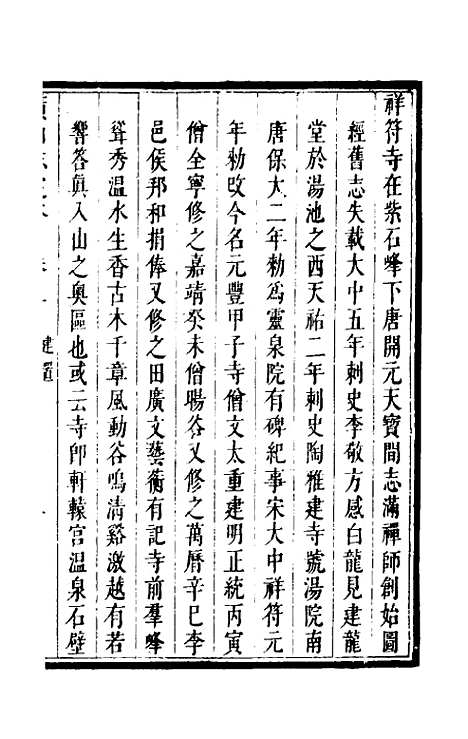 祥符寺在紫石峰下唐開元天寶間志滿禪師創始圖
經舊志失載大中五年刺史李敬方感白龍見建龍
堂於湯池之西天祐二年刺史陶雅建寺號湯院南
唐保大二年勅為靈泉院有碑紀事宋大中祥符元
年勅改今名元豐甲子寺僧文太重建明正統丙寅
僧全寧修之嘉靖癸未僧暘谷又修之萬曆辛巳李
邑侯邦和捐俸又修之田廣文藝蘅有記寺前羣峰
聳秀溫水生香古木千章風動谷鳴清谿激越有若
響答真入山之奧區也或云寺卽軒轅宮溫泉石壁
建置